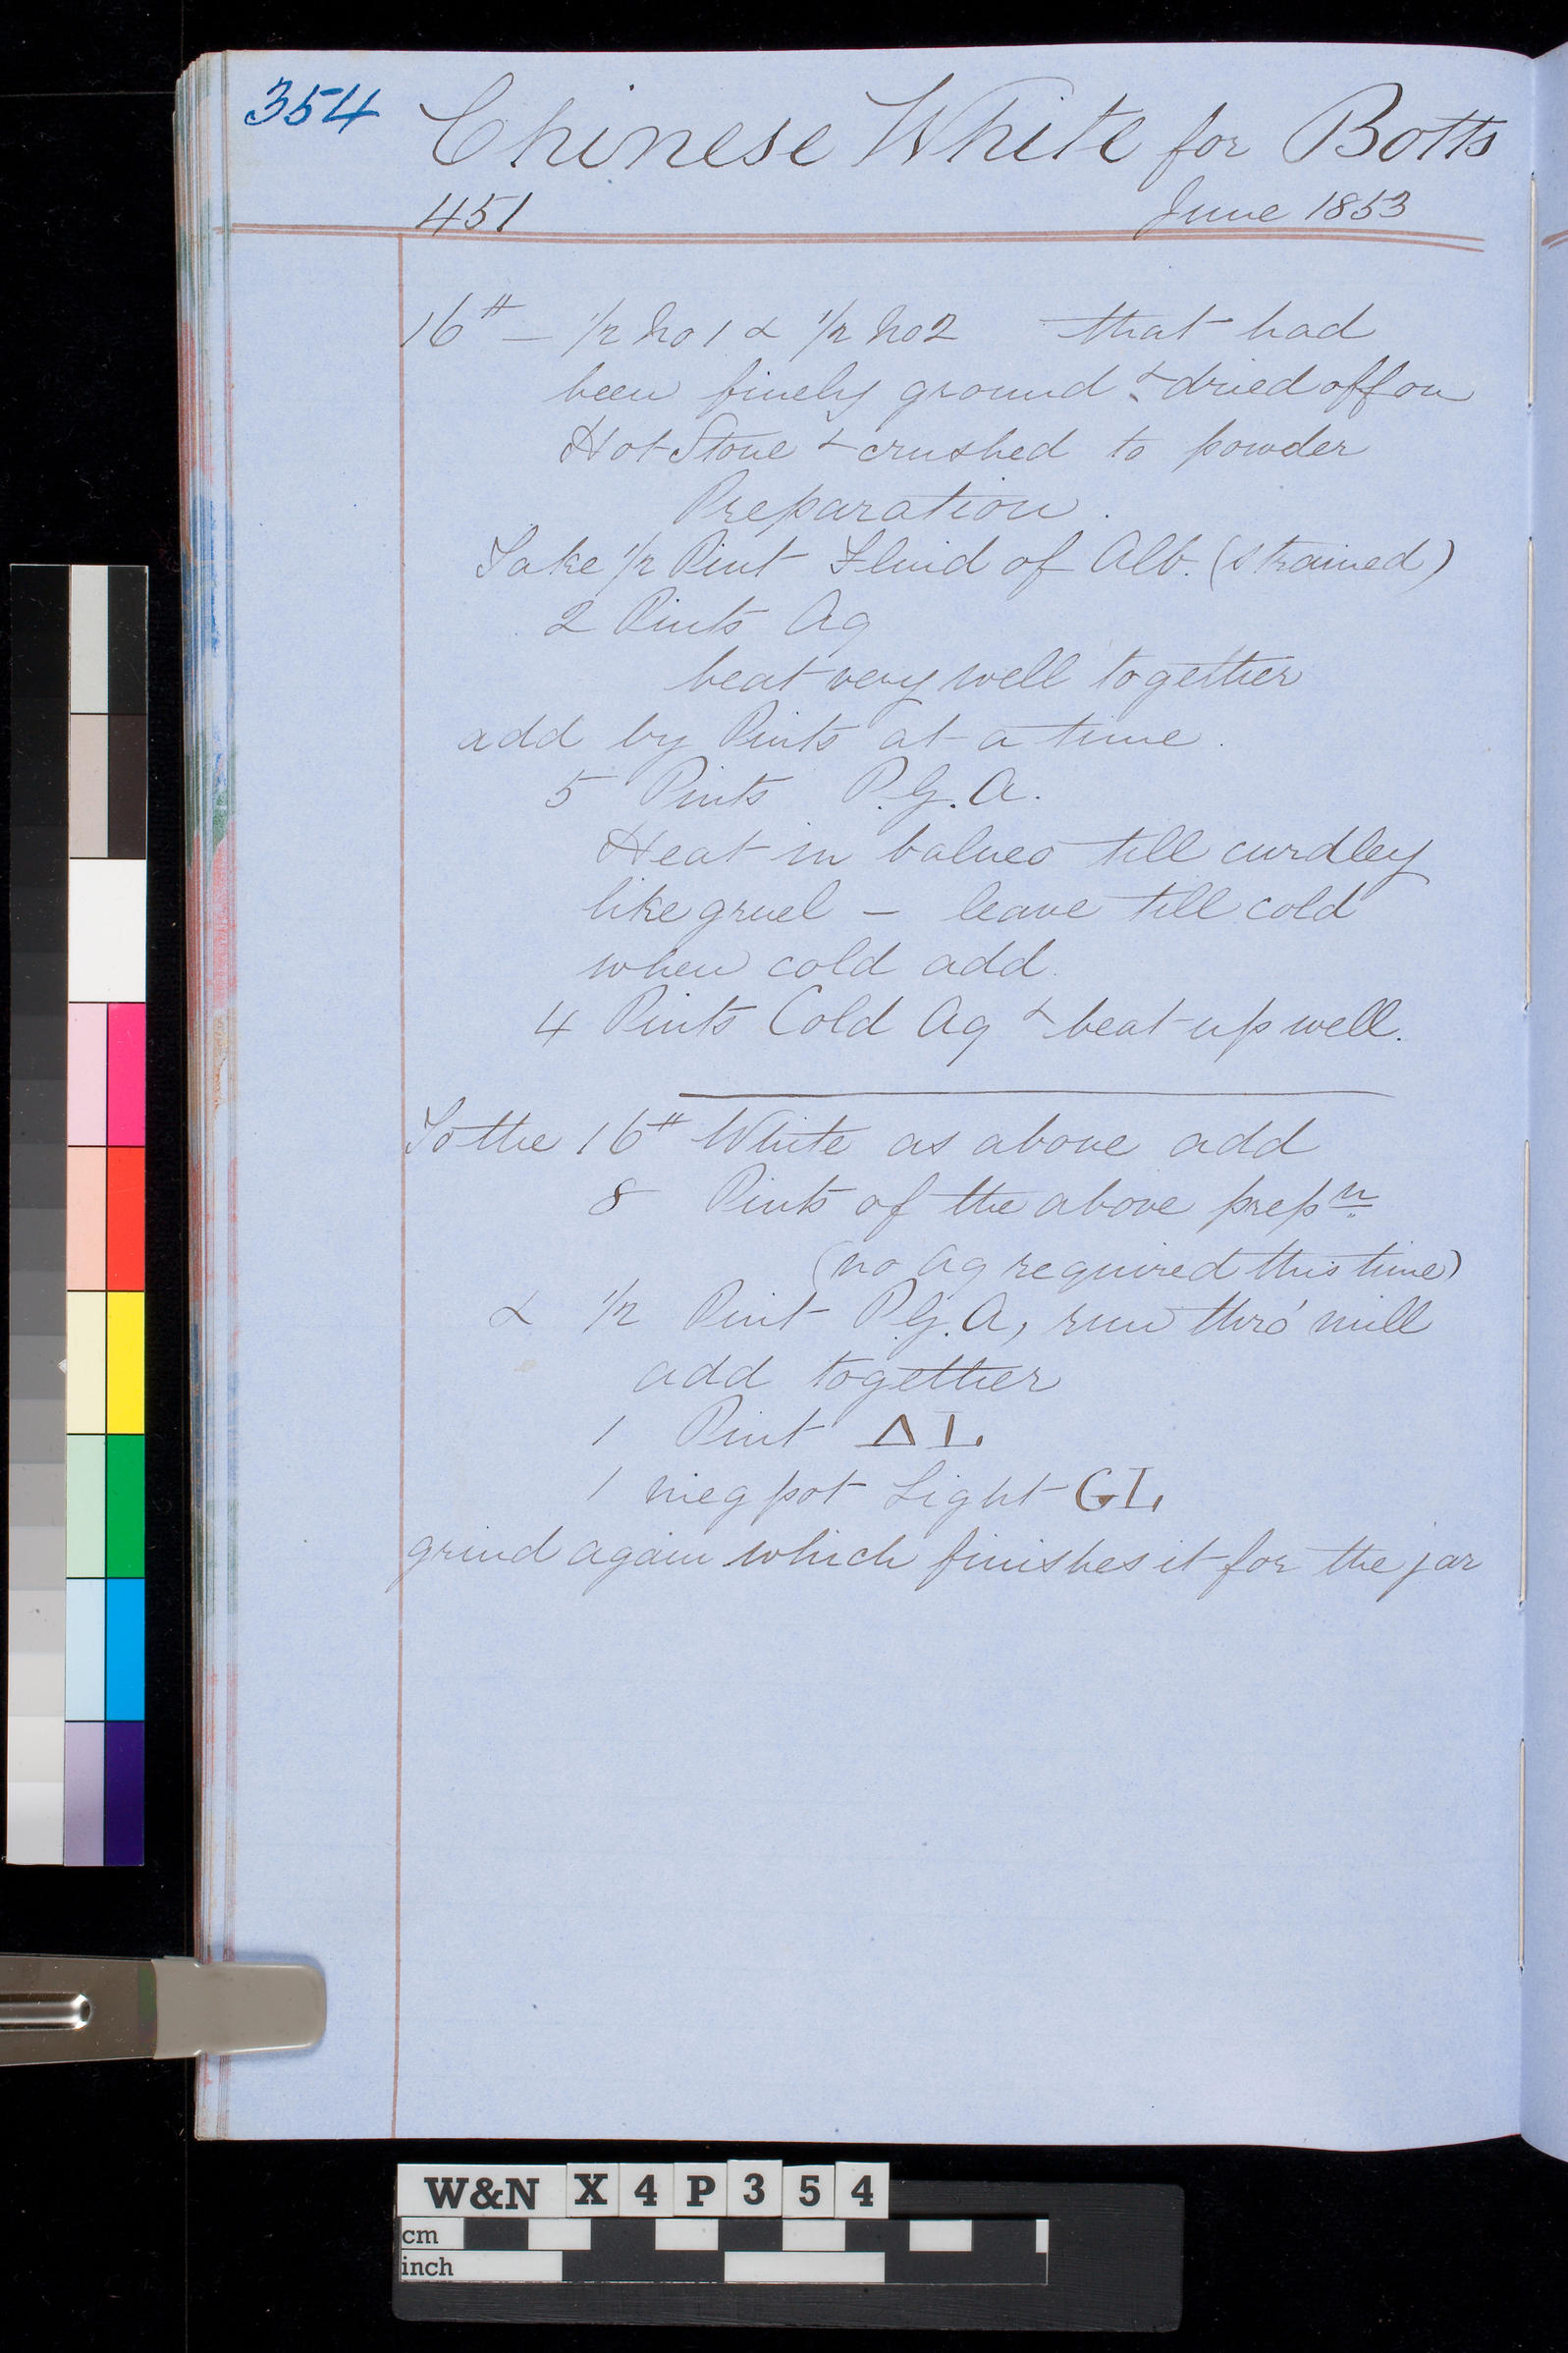 354
Chinese White for Botts
451 June 1853
16# – 1/2 No 1 & 1/2 No 2 that had
been finely ground & dried off on
Hot Stone & crushed to powder
Preparation.
Take 1/2 Pint Fluid of Alb. (strained)
2 Pints Aq
beat very well together
add by Pints at a time.
5 Pints P.G.A.
Heat in balneo till curdley
like gruel – leave till cold
when cold add.
4 Pints Cold Aq & beat up well.
To the 16# White as above add
8 Pints of the above prepn
(no aq required this time)
& 1/2 Pint P.G.A, run thro' mill
add together
1 Pint Δ L.
1 meg pot Light GL,
grind again which finishes it for the jar
W&N X 4 P 3 5 4
cm
inch